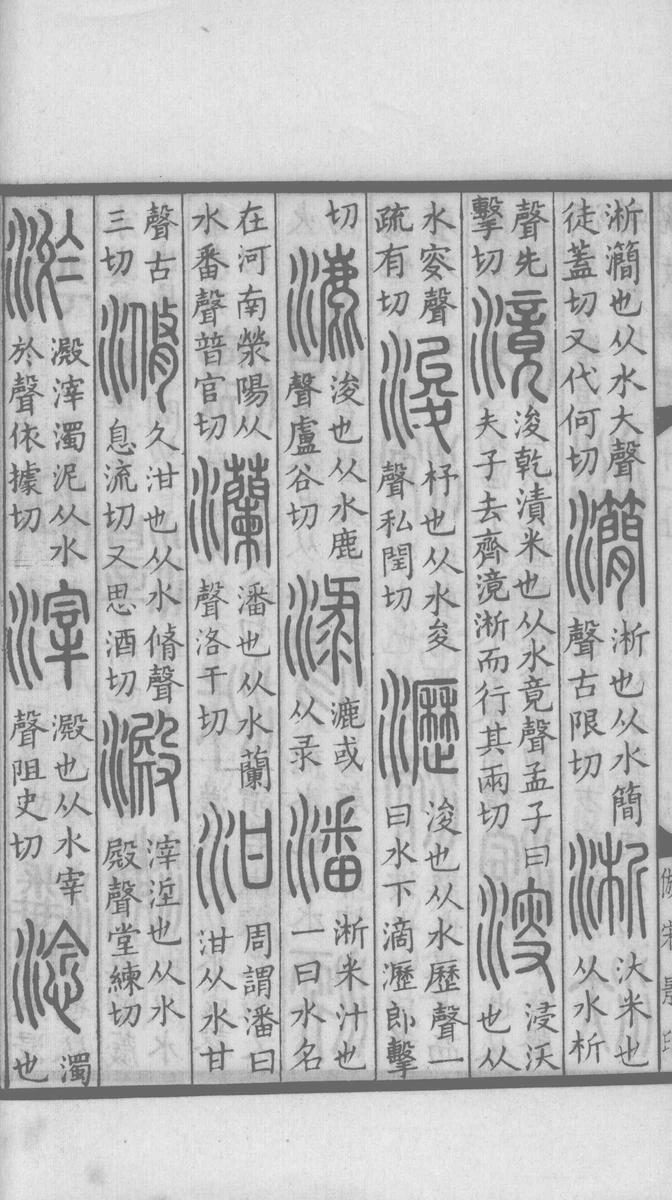 淅㶕也从水大聲徒蓋切又代何切㶕淅也从水簡聲古限切淅汏米也从水析
聲先擊切滰浚乾漬米也从水竟聲孟子曰夫子去齊滰淅而行其兩切溲浸沃也从
水叜聲疏有切浚杼也从水夋聲私閏切瀝浚也从水歷聲一曰水下滴瀝郎擊
切漉浚也从水鹿聲盧谷切渌漉或从录潘淅米汁也一曰水名
在河南滎陽从水番聲普官切灡潘也从水蘭聲洛干切泔周謂潘曰泔从水甘
聲古三切滫久泔也从水脩聲息流切又思酒切澱滓垽也从水殿聲堂練切
淤澱滓濁泥从水於聲依據切滓澱也从水宰聲阻史切淰濁也